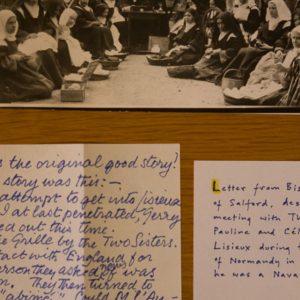 s the original good story?
story was this:—
attempt to get into Lisieux
I at last penetrated, Gerry
ed out this time.
e Grille by the Two Sisters.
tact with England for
erson they asked news was
n. They then turned to
Could M. l'Au-
Letter from Bis
of Salford, des
meeting with T
Pauline and Cél
Lisieux during
of Normandy in
he was a Nava